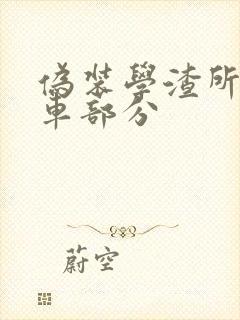 偽裝學渣所
車部分
蔚空